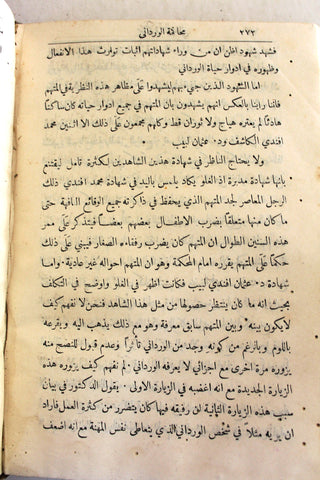 ٢٧٣ محاكمة الورداني
فشهد شهود اظن ان من وراء شهاداتهم اثبات توفرت هذا الانفعال
وظهوره في ادوار حياة الورداني
اما الشهود الذين جي بهم ليشهدوا على مظاهر هذا النظر بقي المتهم
فاننا رأينا بالعكس انهم يشهدون بان المتهم في جميع ادوار حياته كان ساكناً
هادئاً لم يعتره هياج ولا ثوران قط وكلهم مجمعون على ذلك الا اثنين محمد
افندي الكاشف ود. عثمان لبيب
ولا يحتاج الناظر في شهادة هذين الشاهدين لكثرة تأمل ليقتنع
بانها شهادة مدبرة اذ الغلو يكاد يلمس باليد في شهادة محمد افندي ذلك
الرجل المعاصر لجد المتهم الذي يحفظ في ذاكرته جميع الوقائع التافهة حتى
ما كان منها متعلقاً بضرب الاطفال بعضهم بعضاً فيتذكر على ممر
هذه السنين الطوال ان المتهم كان يضرب رفقاءه الصغار فيبني على ذلك
حكماً على المتهم يقرره امام المحكمة وهو ان المتهم احواله غير عادية - واما
شهادة د. عثمان افندي لبيب فكانت اظهر في الغلو واوضح في التكلف
بحيث انه ما كان ينتظر حصولها من مثل هذا الشاهد فنحن لا نفهم كيف
لا يكون بينه وبين المتهم سابق معرفة وهو مع ذلك يذهب اليه ويقرعه
باللوم وبالرغم من كونه وجد من الورداني تأثراً وعدم قبول للنصح منه
يزوره مرة اخرى مع اجزائي لا يعرفه الورداني. لم نفهم كيف يزوره هذه
الزيارة الجديدة مع انه اغضبه في الزيارة الاولى. يقول الدكتور في بيان
سبب هذه الزيارة الثانية ان رفيقه فيها كان يتضرر من كثرة العمل فاراد
ان يريه مثلاً في شخص الورداني الذي يتعاطى نفس المهنة مع انه اضعف